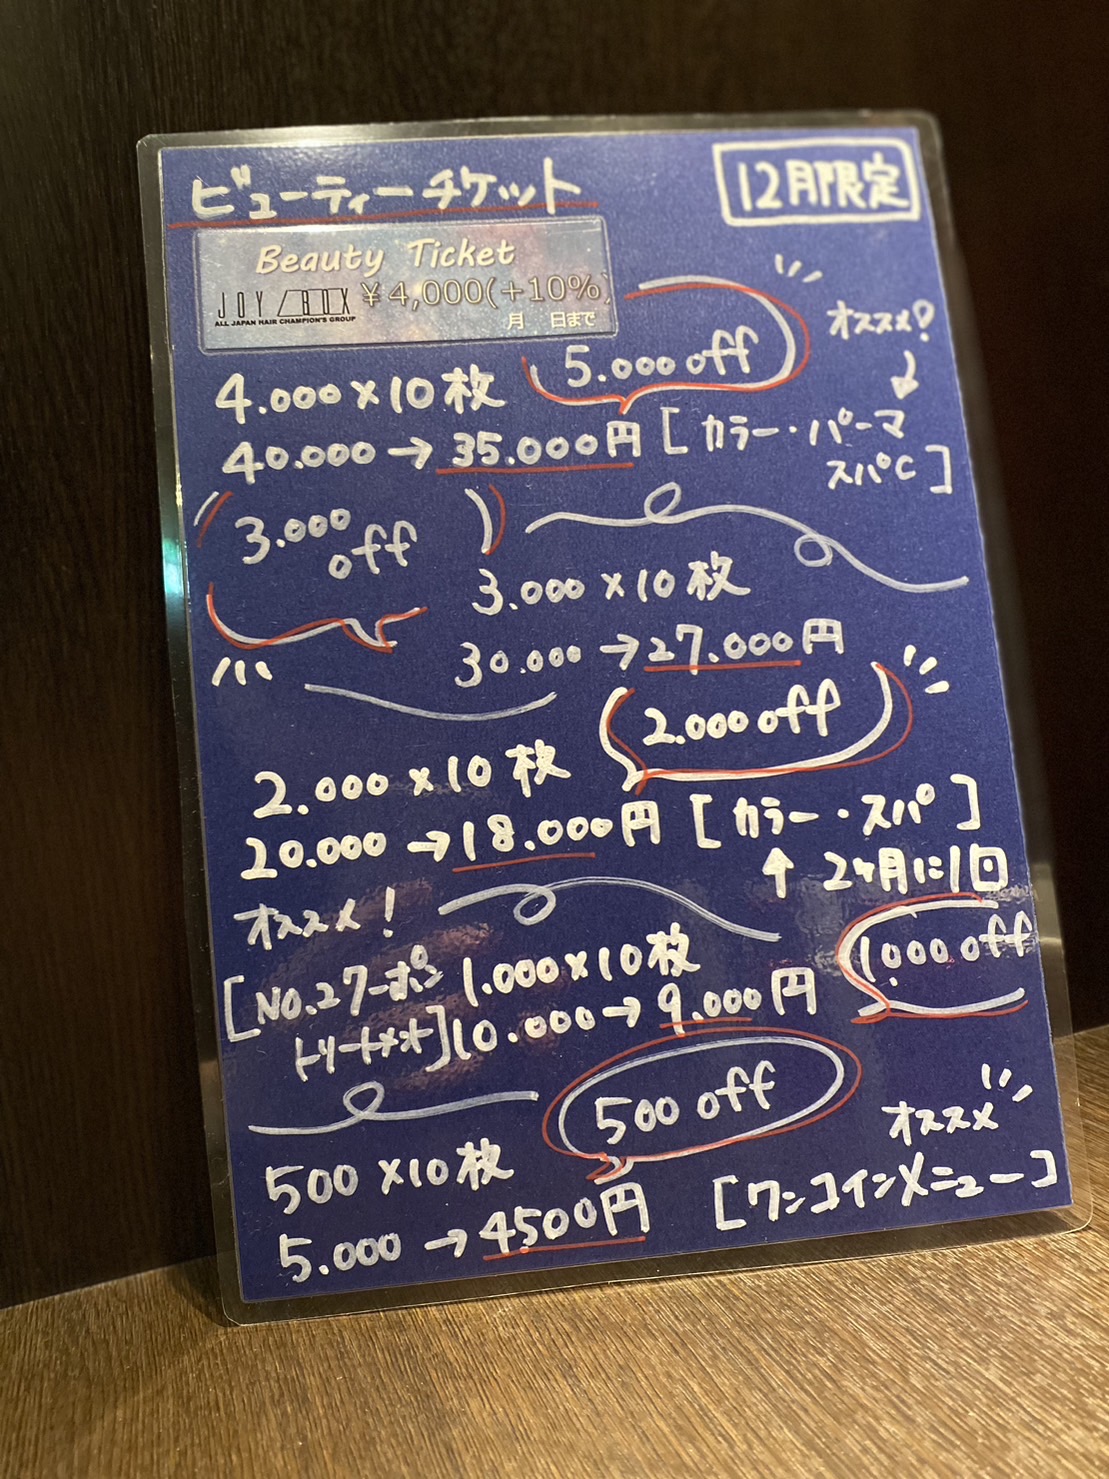 ビューティーチケット
12月限定
Beauty Ticket
JOY BOX
ALL JAPAN HAIR CHAMPION'S GROUP
¥4,000(+10%)
月 日まで
オススメ?
↓
5.000 off
4.000×10枚
40.000→35.000円
[カラー・パーマ
スパC]
3.000
off
3.000×10枚
30.000→27.000円
2.000 off
2.000×10枚
20.000→18.000円
[カラー・スパ]
↑ 2ヶ月に1回
オススメ!
[NO.27ーポン
トリートメント]
1.000×10枚
10.000→9.000円
1000 off
500 off
500×10枚
5.000→4500円
オススメ
[ワンコインメニュー]